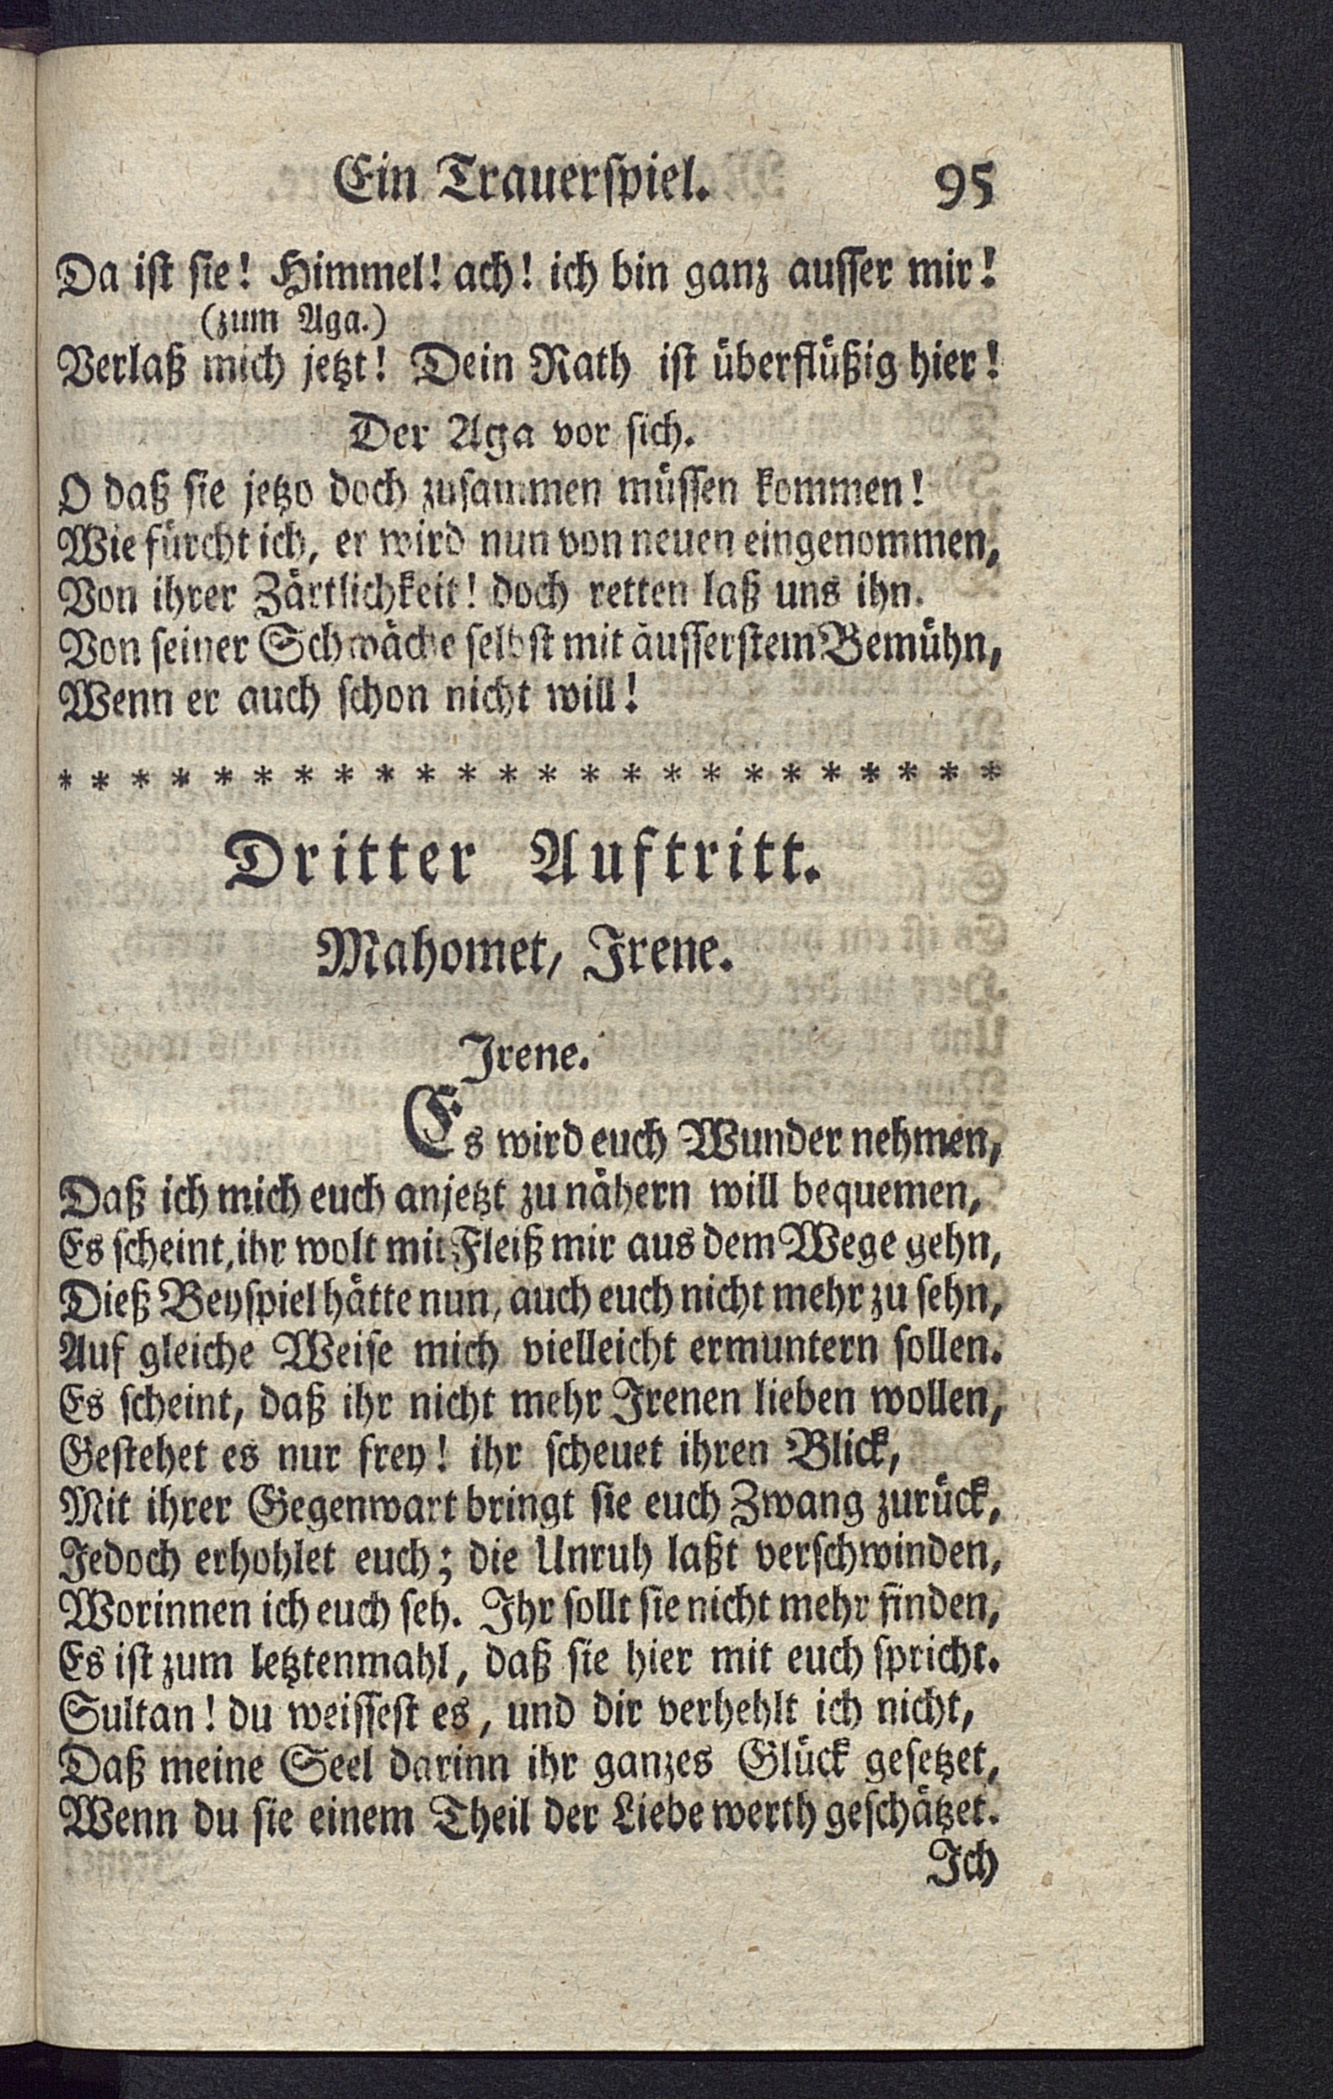 Ein Trauerspiel. 95
Da ist sie! Himmel! ach! ich bin ganz ausser mir!
(zum Aga.)
Verlaß mich jetzt! Dein Rath ist überflüßig hier!
Der Aga vor sich.
O daß sie jetzo doch zusammen müssen kommen!
Wie fürcht ich, er wird nun von neuen eingenommen,
Von ihrer Zärtlichkeit! doch retten laß uns ihn.
Von seiner Schwäche selbst mit äusserstem Bemühn,
Wenn er auch schon nicht will!
* * * * * * * * * * * * * * * * * * * * * * * *
Dritter Auftritt.
Mahomet, Irene.
Irene.
Es wird euch Wunder nehmen,
Daß ich mich euch anjetzt zu nähern will bequemen,
Es scheint, ihr wolt mit Fleiß mir aus dem Wege gehn,
Dieß Beyspiel hätte nun, auch euch nicht mehr zu sehn,
Auf gleiche Weise mich vielleicht ermuntern sollen.
Es scheint, daß ihr nicht mehr Irenen lieben wollen,
Gestehet es nur frey! ihr scheuet ihren Blick,
Mit ihrer Gegenwart bringt sie euch Zwang zurück,
Jedoch erhohlet euch; die Unruh laßt verschwinden,
Worinnen ich euch seh. Ihr sollt sie nicht mehr finden,
Es ist zum letztenmahl, daß sie hier mit euch spricht.
Sultan! du weissest es, und dir verhehlt ich nicht,
Daß meine Seel darinn ihr ganzes Glück gesetzet,
Wenn du sie einem Theil der Liebe werth geschätzet.
Ich